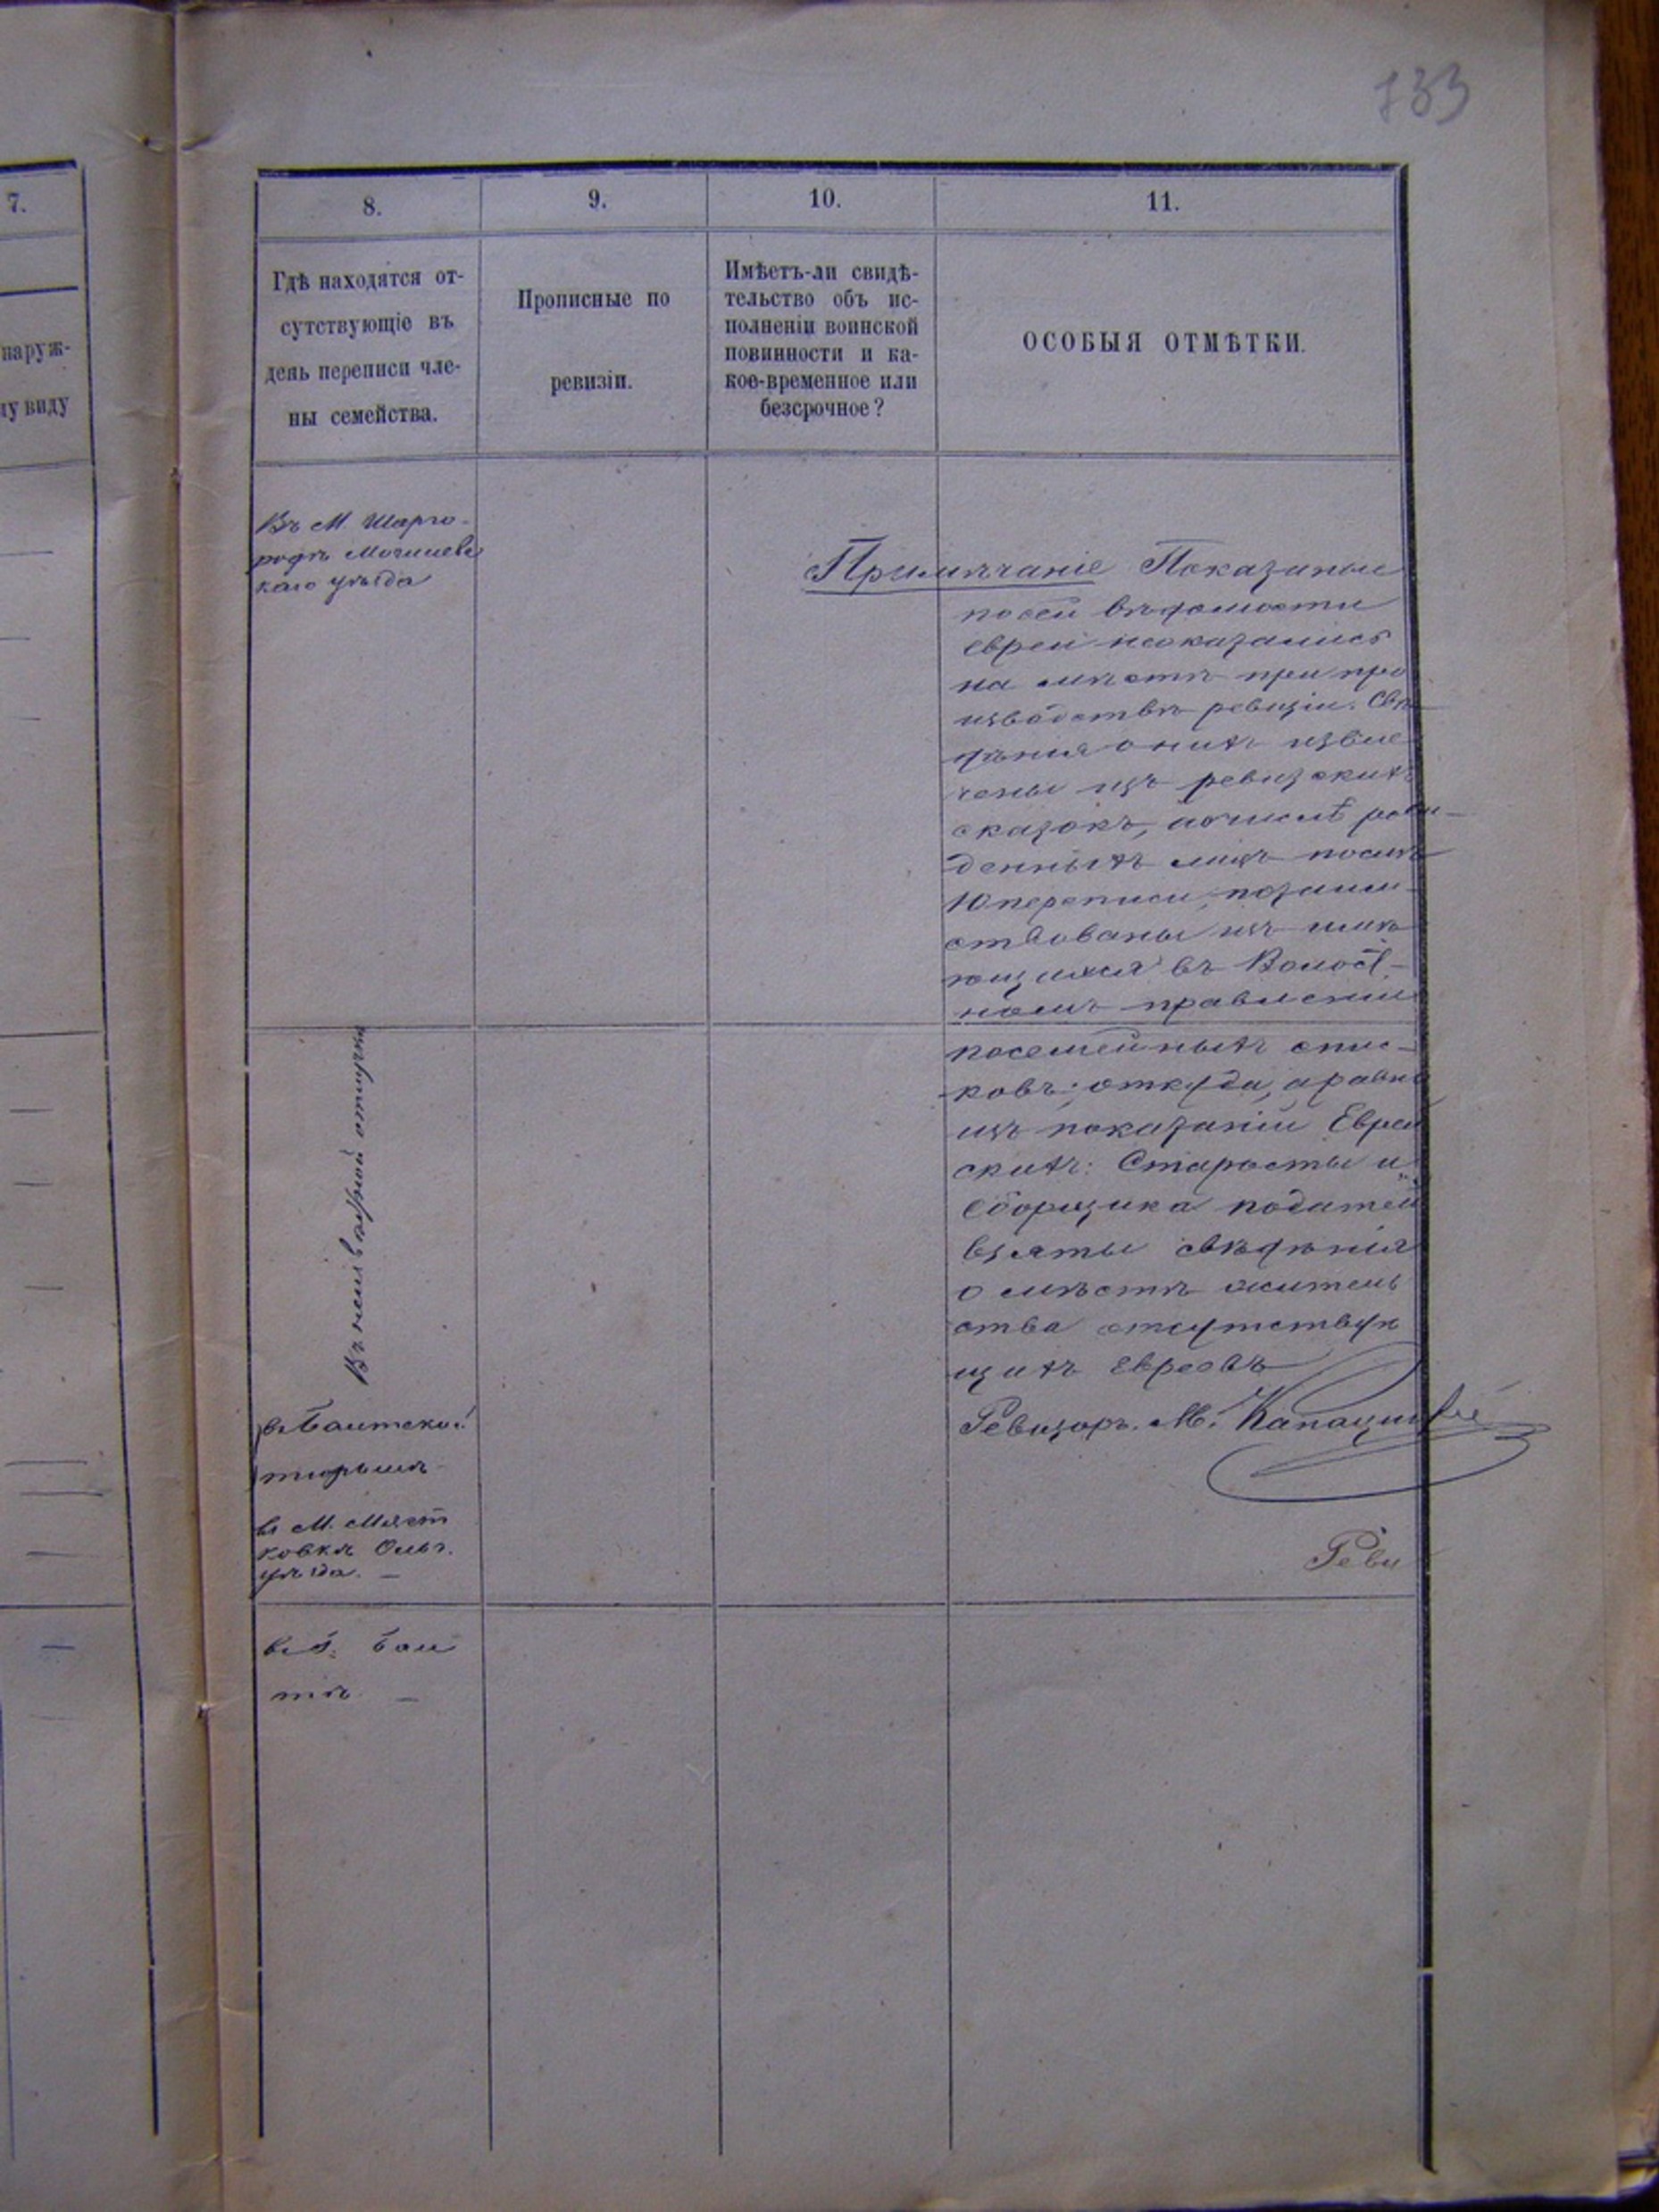 733
7.
наруж-
му виду
8.
9.
10.
11.
Гдѣ находятся от-
сутствующіе въ
день переписи чле-
ны семейства.
Прописные по
ревизіи.
Имѣетъ-ли свидѣ-
тельство объ ис-
полненіи воинской
повинности и ка-
кое-временное или
безсрочное?
ОСОБЫЯ ОТМѢТКИ.
Въ М. Шарго-
родѣ Могилевс
каго уѣзда
Примѣчаніе Показаные
по сей вѣдомости
евреи неоказались
на мѣстѣ при про
изводствѣ ревизіи. Свѣ
дѣнія о нихъ извле
чены изъ ревизскихъ
сказокъ, а о числѣ рож
денныхъ лицъ послѣ
10 переписи, позаим-
ствованы изъ имѣ
ющихся въ Волост-
номъ правленіи
посемейныхъ спис-
ковъ; откуда, а равно
изъ показаній Еврей
скихъ: Старосты и
Сборщика податей
взяты свѣдѣнія
о мѣстѣ житель
ства отсутствую
щихъ евреевъ
Ревизоръ М.
Реви
отлучки
въ Балтской
тюрьмѣ
въ М. Мяст
ковкѣ Ольг.
уѣзда. —
въ г. Бал
тѣ —